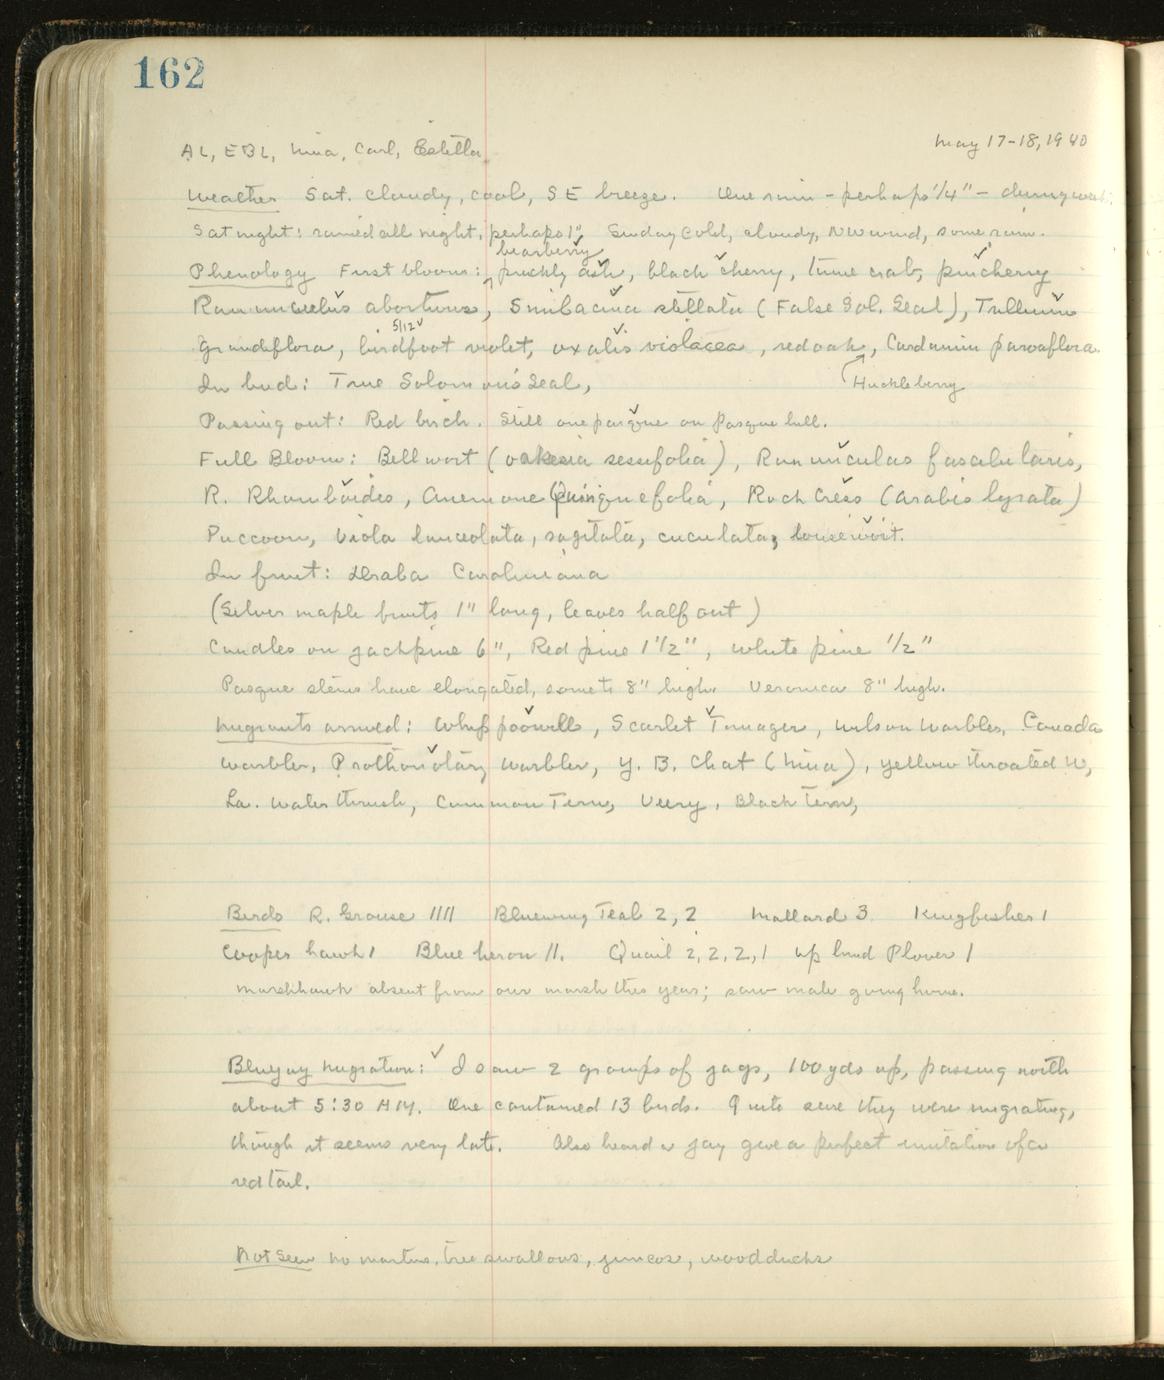 162
AL, EBL, Nina, Carl, Estella
May 17-18, 1940
Weather Sat. cloudy, cool, SE breeze. One rain - perhaps 1/4" - during week.
Sat night: rained all night, perhaps 1". Sunday cold, cloudy, NW wind, some rain.
bearberry
Phenology First blooms: prickly ash, black cherry, tame crab, pincherry
Rannunculus abortivus, Smilacina stellata (False Sol. Seal), Trillium
5/12
grandiflora, birdfoot violet, oxalis violacea, red oak, Cardamin parvaflora.
In bud: True Solomon's Seal,
Huckleberry
Passing out: Red birch. Still one pasque on Pasque hill.
Full Bloom: Bellwort (oakesia sessifolia), Rannuculas fascularis,
R. Rhomboides, Anemone Quinquefolia, Rock Cress (Arabis lyrata)
Puccoon, Viola lanceolata, sagitata, cuculata, lousewort.
In fruit: Draba Caroliniana
(Silver maple fruits 1" long, leaves half out)
Candles on jackpine 6", Red pine 1 1/2", white pine 1/2"
Pasque stems have elongated, some to 8" high. Veronica 8" high.
Migrants arrived: Whippoorwill, Scarlet Tanager, Wilson Warbler, Canada
Warbler, Prothonotary Warbler, Y. B. Chat (Nina), yellow throated W,
La. Water thrush, Common Tern, Veery, Black Tern,
Birds R. Grouse 1111 Bluewing Teal 2, 2 Mallard 3 Kingfisher 1
Cooper hawk 1 Blue heron 11. Quail 2, 2, 2, 1 Upland Plover 1
Marshhawk absent from our marsh this year; saw male going home.
Bluejay Migration: I saw 2 groups of jays, 100 yds up, passing north
about 5:30 AM. One contained 13 birds. Quite sure they were migrating,
though it seems very late. Also heard a jay give a perfect imitation of a
redtail.
Not Seen no martins, tree swallows, juncos, woodducks